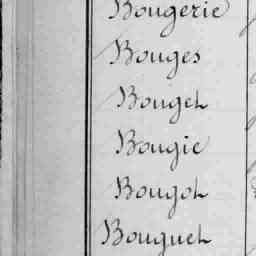 Bougerie
Bouges
Bouget
Bougie
Bougot
Bouguet